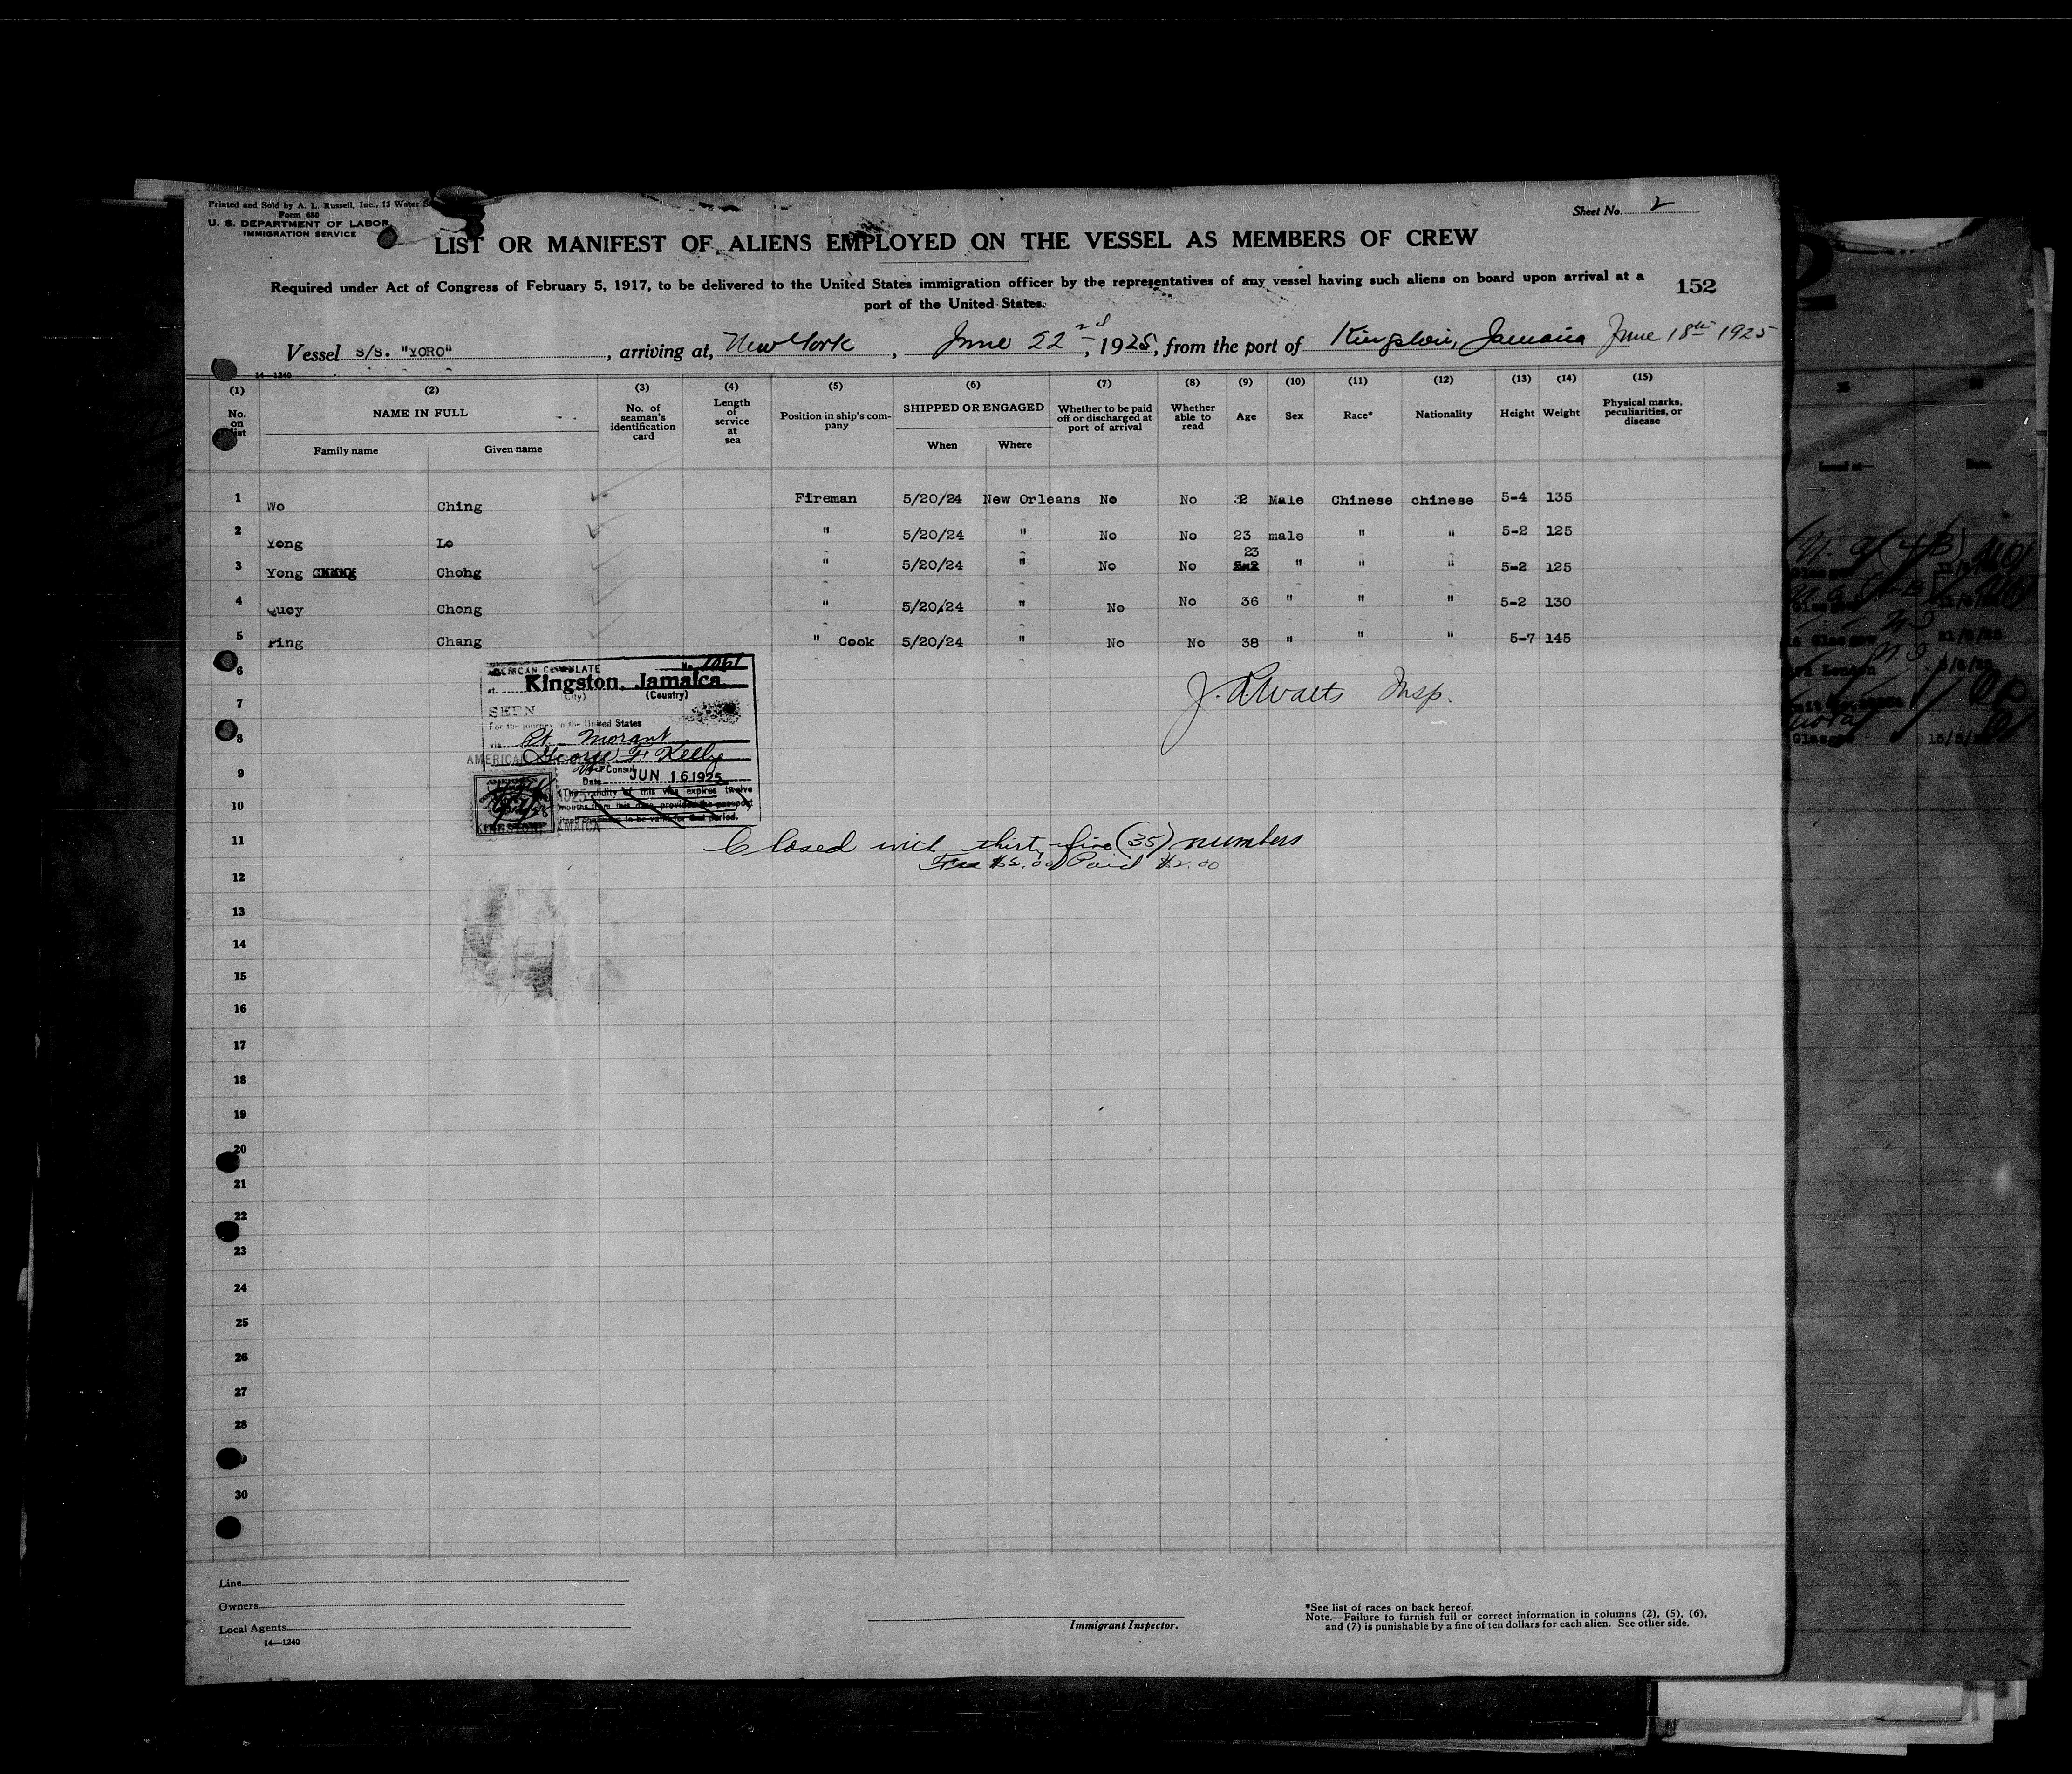 Printed and Sold by A. L. Russell, Inc., 13 Water
Form 680
U. S. DEPARTMENT OF LABOR
IMMIGRATION SERVICE
Sheet No. 2
LIST OR MANIFEST OF ALIENS EMPLOYED ON THE VESSEL AS MEMBERS OF CREW
Required under Act of Congress of February 5, 1917, to be delivered to the United States immigration officer by the representatives of any vessel having such aliens on board upon arrival at a
port of the United States.
152
Vessel S/S. "YORO", arriving at, New York, June 22nd, 1925, from the port of Kingston, Jamaica June 18th 1925
14—1240
(1) (2) (3) (4) (5) (6) (7) (8) (9) (10) (11) (12) (13) (14) (15)
No. on list NAME IN FULL No. of seaman's identification card Length of service at sea Position in ship's company SHIPPED OR ENGAGED Whether to be paid off or discharged at port of arrival Whether able to read Age Sex Race* Nationality Height Weight Physical marks, peculiarities, or disease
Family name Given name When Where
1 Wo Ching Fireman 5/20/24 New Orleans No No 32 Male Chinese chinese 5-4 135
2 Yong Lo " 5/20/24 " No No 23 male " " 5-2 125
23
3 Yong Chong " 5/20/24 " No No " " " 5-2 125
4 Quoy Chong " 5/20/24 " No No 36 " " " 5-2 130
5 Ping Chang " Cook 5/20/24 " No No 38 " " " 5-7 145
6
7
8
9
10
11
12
13
14
15
16
17
18
19
20
21
22
23
24
25
26
27
28
30
AMERICAN CONSULATE No. 1061
at Kingston, Jamaica.
(City) (Country)
SEEN
For the journey to the United States
via Pt. Morant
George F. Kelly
Vice Consul
Date JUN 16 1925
The validity of this visa expires twelve
months from this date, provided the passport
to be valid for that period.
KINGSTON, JAMAICA
J. A. Watts Insp.
Closed with thirty-five (35) numbers
Fee $2.00 Paid $2.00
Line
Owners
Local Agents
14—1240
Immigrant Inspector.
*See list of races on back hereof.
Note.—Failure to furnish full or correct information in columns (2), (5), (6),
and (7) is punishable by a fine of ten dollars for each alien. See other side.